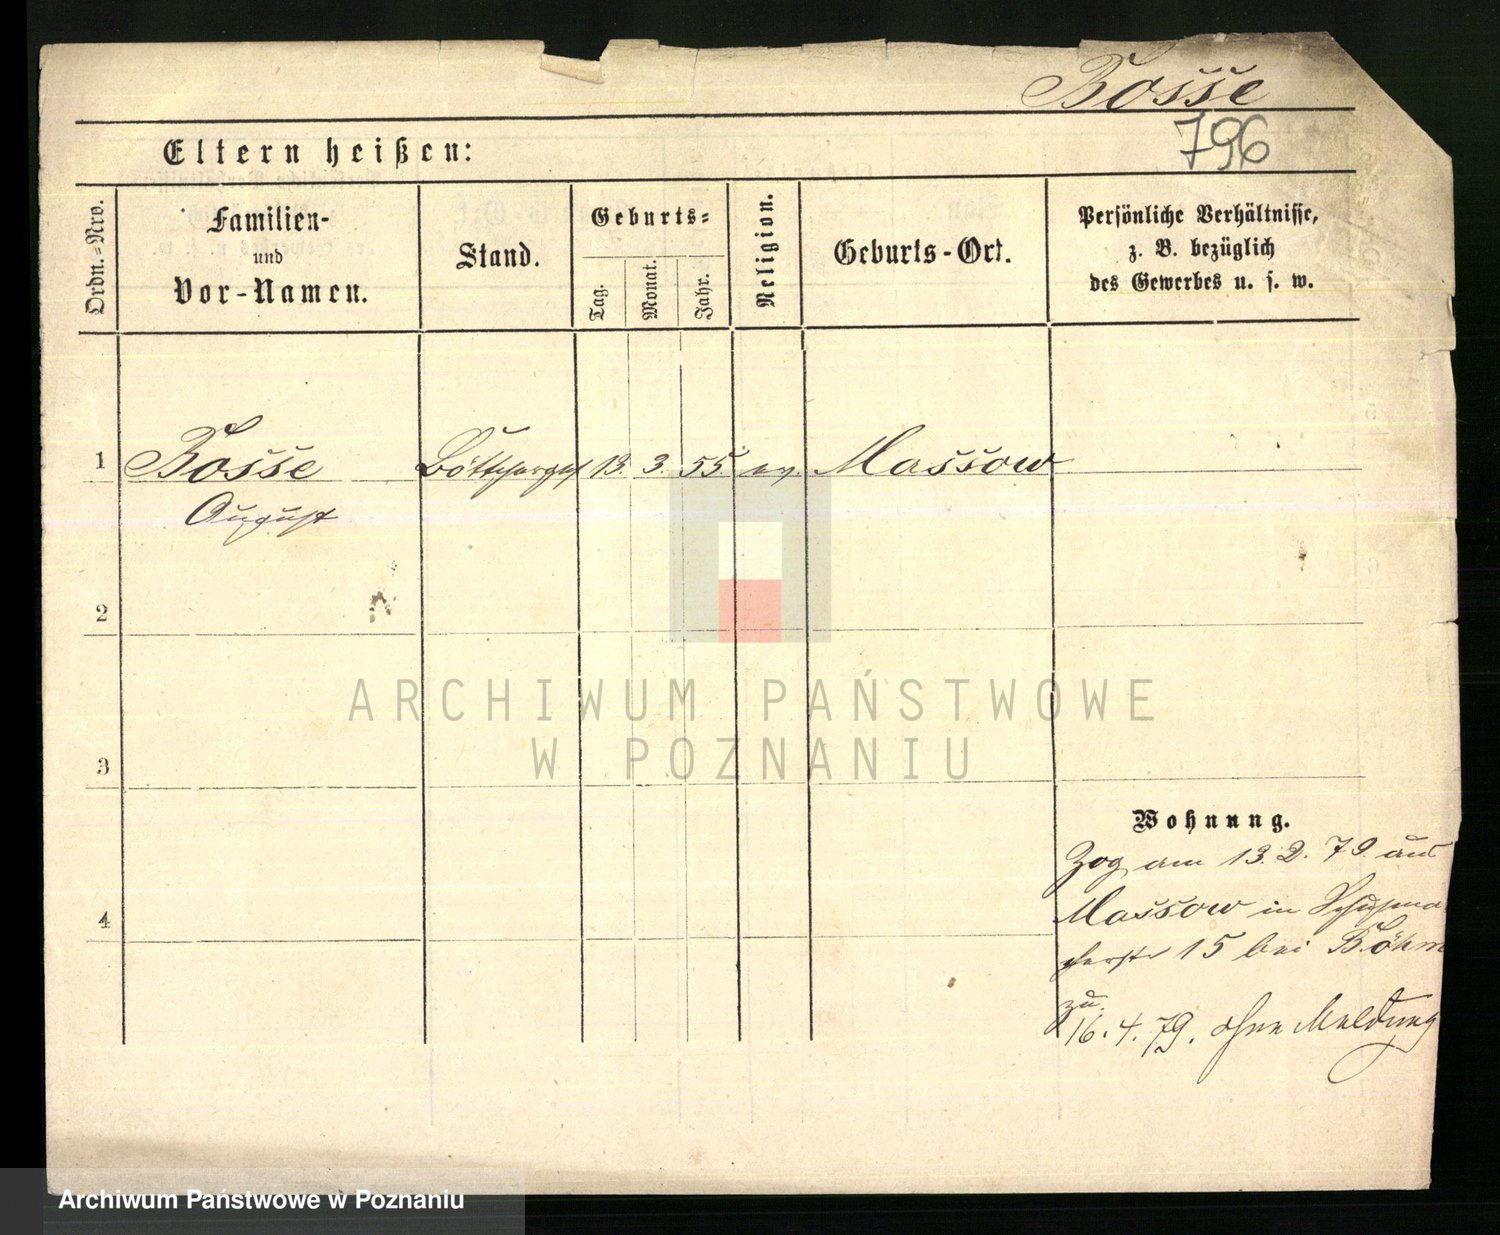 Bosse
796
Eltern heißen:
Ordn.-Nro.
Familien-
und
Vor-Namen.
Stand.
Geburts-
Tag.
Monat.
Jahr.
Religion.
Geburts-Ort.
Persönliche Verhältnisse,
z. B. bezüglich
des Gewerbes u. s. w.
1
Bosse Böttcherges 13. 3. 55. ev. Massow
August
2
3
4
Wohnung.
Zog am 13. 2. 79. aus
Massow in Schuhma
cherstr 15 bei Böhm
zu.
16. 4. 79. ohne Meldung
ARCHIWUM PAŃSTWOWE
W POZNANIU
Archiwum Państwowe w Poznaniu